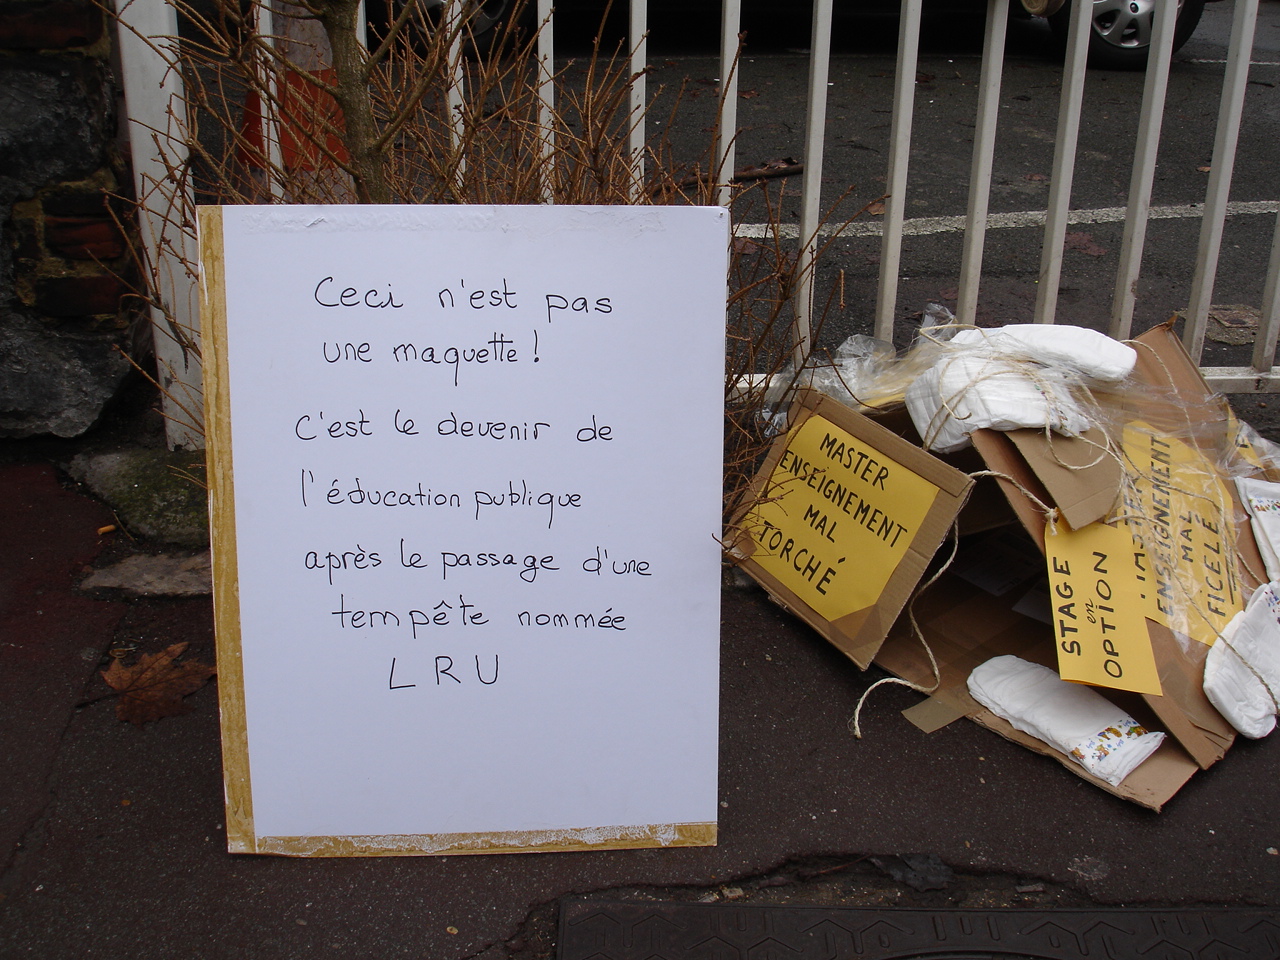 Ceci n'est pas
une maquette !
c'est le devenir de
l'éducation publique
après le passage d'une
tempête nommée
LRU
MASTER
ENSEIGNEMENT
MAL
TORCHÉ
STAGE
en
OPTION
MASTER
ENSEIGNEMENT
MAL
FICELÉ